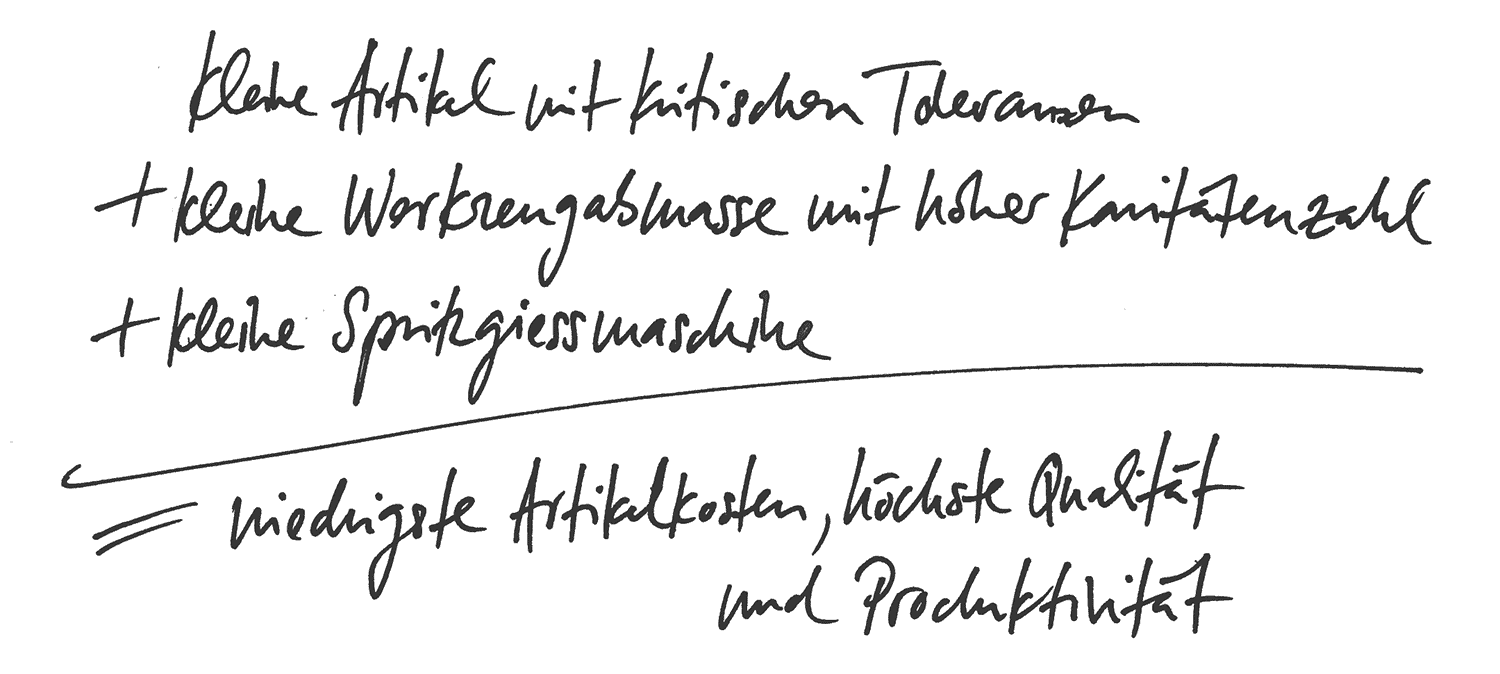 kleine Artikel mit kritischen Toleranzen
+ kleine Werkzeugabmasse mit hoher Kavitätenzahl
+ kleine Spritzgiessmaschine
= niedrigste Artikelkosten, höchste Qualität
und Produktivität